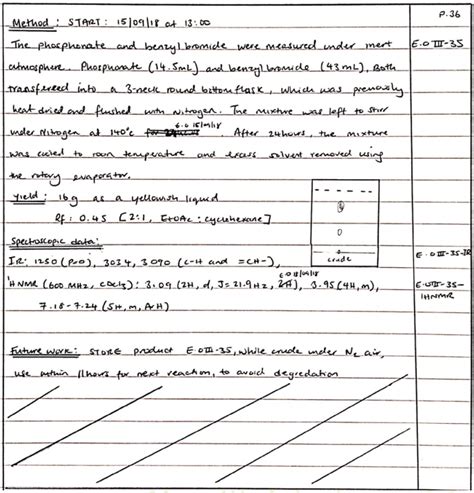 P.36
Method: START: 15/09/18 at 13:00
The phosphonate and benzyl bromide were measured under inert E.O III-35
atmosphere. Phosphonate (14.5mL) and benzyl bromide (43mL), Both
transferred into a 3-neck round bottom flask, which was previously
heat dried and flushed with nitrogen. The mixture was left to stirr
under Nitrogen at 140°c E.O 15/09/18. After 24hours, the mixture
was cooled to room temperature and excess solvent removed using
the rotary evaporator.
Yield: 16g as a yellowish liquid
Rf: 0.45 [2:1, EtOAc : cyclohexane]
crude
Spectroscopic data:
IR: 1250 (P=O), 3034, 3090 (C-H and =CH-), E.O III-35-IR
E.O 18/09/18
¹HNMR (600 MHz, CDCl3): 3.09 (2H, d, J=21.9Hz, 2H), 3.95 (4H, m), E.O III-35-
1HNMR
7.18-7.24 (5H, m, ArH)
Future work: STORE product E.O III-35, while crude under N2 air,
use within hours for next reaction, to avoid degredation